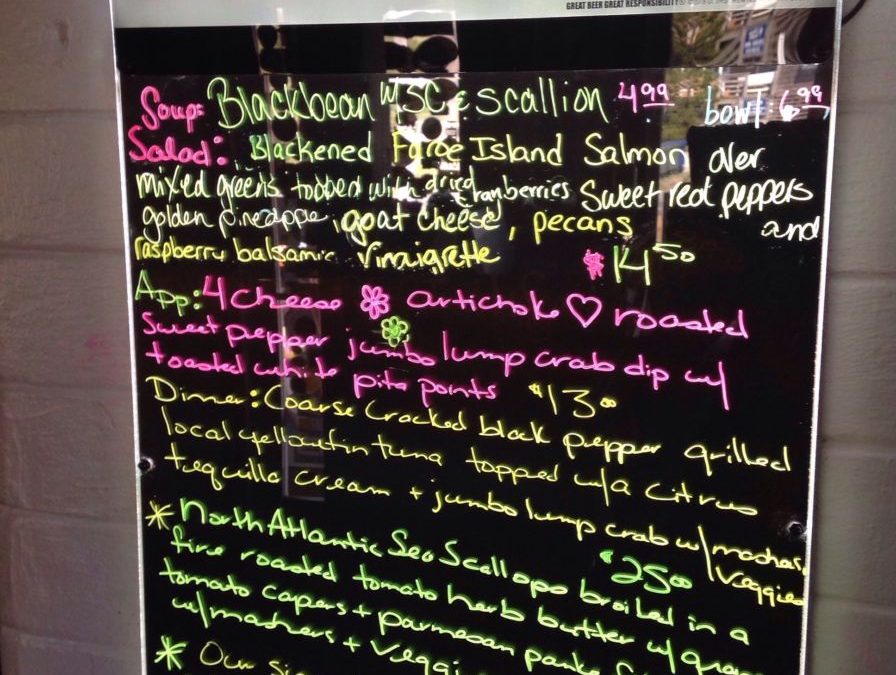 GREAT BEER GREAT RESPONSIBILITY
Soup: Blackbean w/SC & scallion 4.99 bowl: 6.99
Salad: Blackened Faroe Island Salmon over
mixed greens topped with dried cranberries Sweet red peppers
golden pineapple, goat cheese, pecans and
raspberry balsamic Vinaigrette $14.50
App: 4 cheese artichoke ♡ roasted
Sweet pepper jumbo lump crab dip w/
toasted white pita points $13.00
Dinner: Coarse Cracked black pepper grilled
local yellowfin tuna topped w/a citrus
tequilla cream + jumbo lump crab w/mashers
veggies
* North Atlantic Sea Scallops broiled in a $25.00
fire roasted tomato herb butter w/
tomato capers + parmesan panko
w/mashers + veggi
* Our